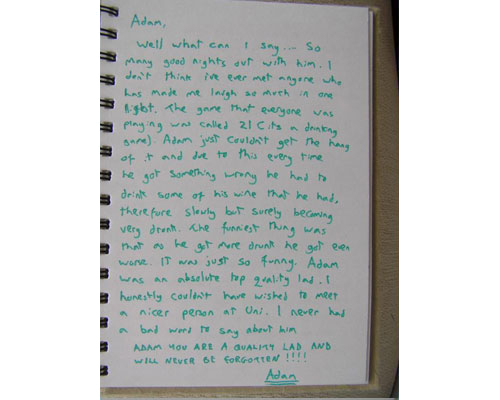 Adam,
Well what can I say... So
many good nights out with him. I
don't think i've ever met anyone who
has made me laugh so much in one
night. The game that everyone was
playing was called 21 (its a drinking
game). Adam just couldn't get the hang
of it and due to this every time
he got something wrong he had to
drink some of his wine that he had,
therefore slowly but surely becoming
very drunk. The funniest thing was
that as he got more drunk he got even
worse. IT was just so funny. Adam
was an absolute top quality lad. I
honestly couldn't have wished to meet
a nicer person at Uni. I never had
a bad word to say about him
ADAM YOU ARE A QUALITY LAD AND
WILL NEVER BE FORGOTTEN !!!!
Adam